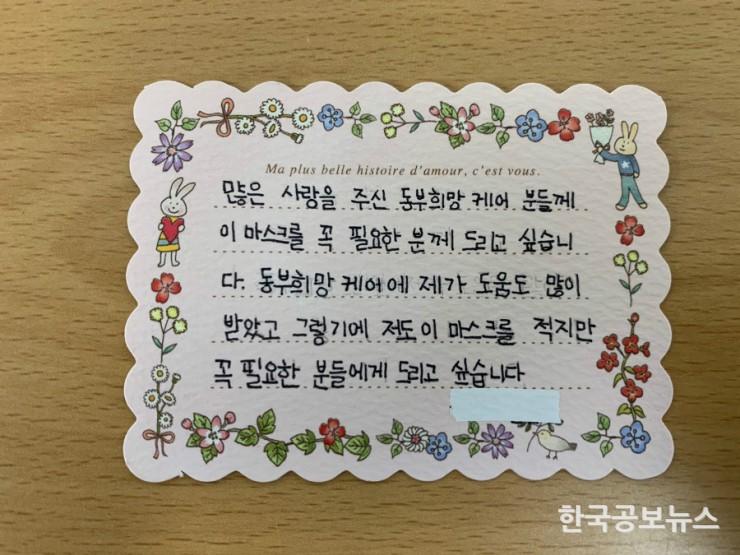 Ma plus belle histoire d'amour, c'est vous.
많은 사랑을 주신 동부희망케어 분들께
이 마스크를 꼭 필요한 분께 드리고 싶습니
다. 동부희망케어에 제가 도움도 많이
받았고 그렇기에 저도 이 마스크를 적지만
꼭 필요한 분들에게 드리고 싶습니다
한국공보뉴스